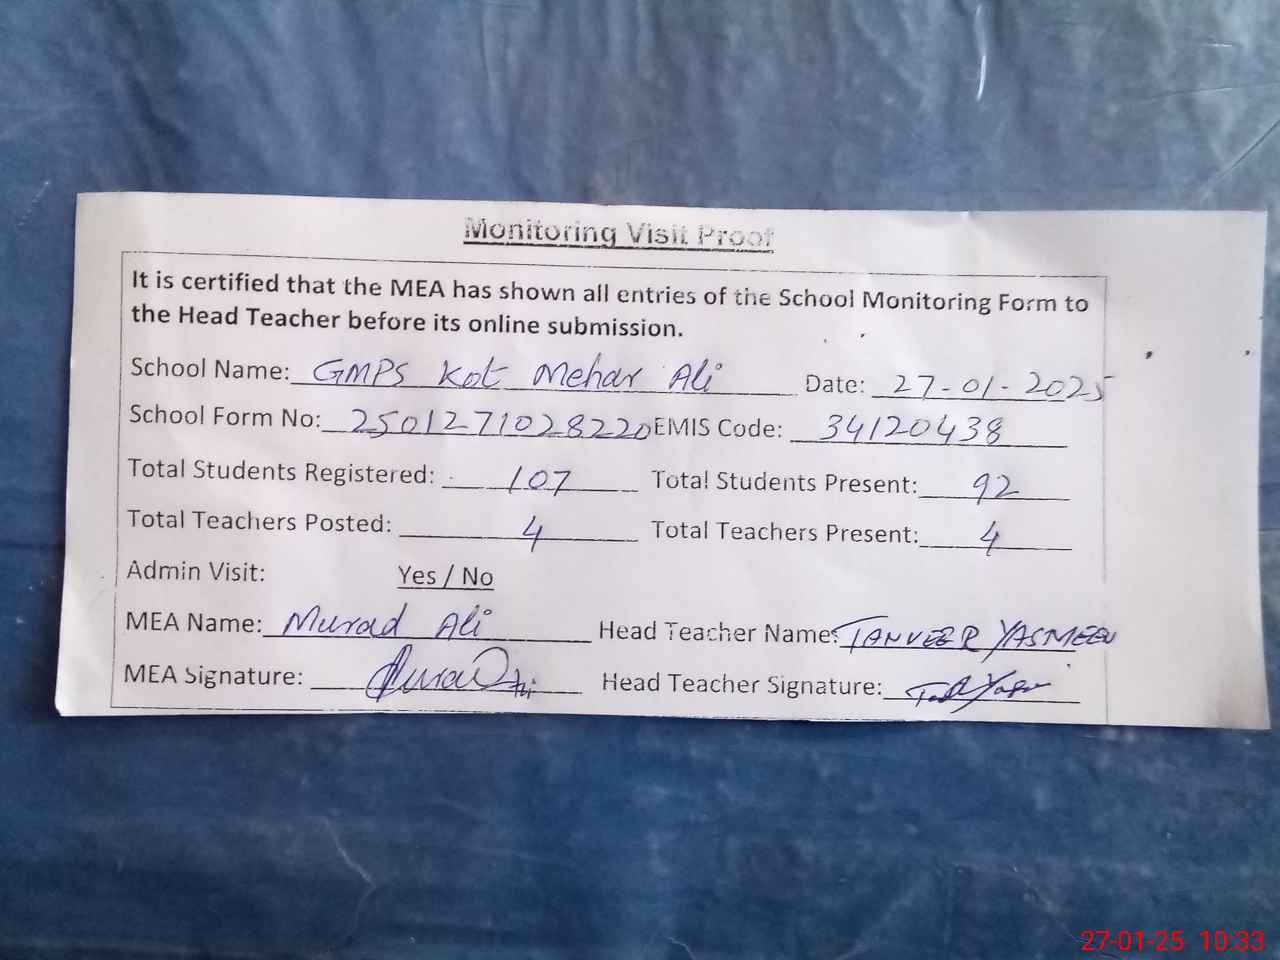 Monitoring Visit Proof
It is certified that the MEA has shown all entries of the School Monitoring Form to
the Head Teacher before its online submission.
School Name: GMPS Kot Mehar Ali Date: 27-01-2025
School Form No: 2501271028220 EMIS Code: 34120438
Total Students Registered: 107 Total Students Present: 92
Total Teachers Posted: 4 Total Teachers Present: 4
Admin Visit: Yes / No
MEA Name: Murad Ali Head Teacher Name: TANVEER YASMEEN
MEA Signature: Head Teacher Signature:
27-01-25 10:33